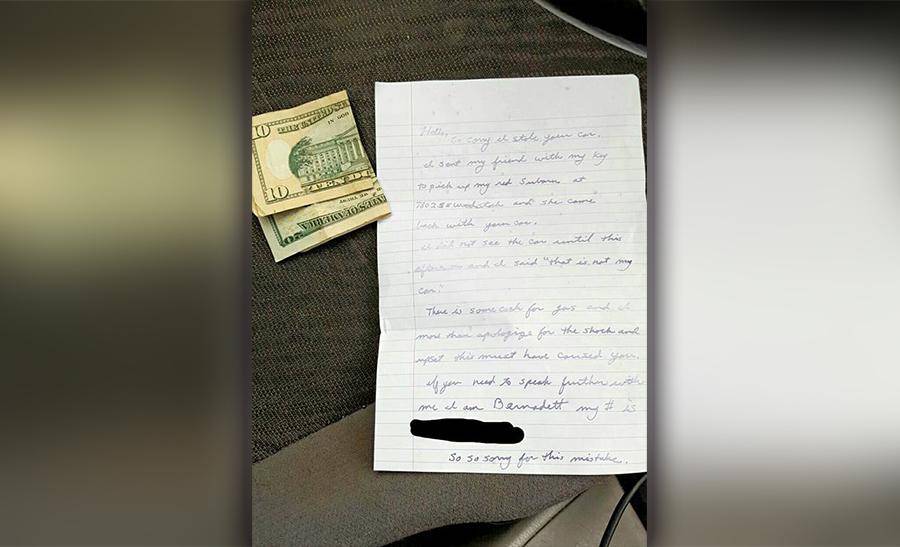 10
THE UNITED STA
IN GOD
10
TES OF AMERICA
20
Hello,
So sorry I stole your car.
I sent my friend with my key
to pick up my red Subaru at
and she came
back with your car.
I did not see the car until this
afternoon and I said "that is not my
car."
There is some cash for gas and I
more than apologize for the shock and
upset this must have caused you.
If you need to speak further with
me I am Bernadett my # is
So so sorry for this mistake.